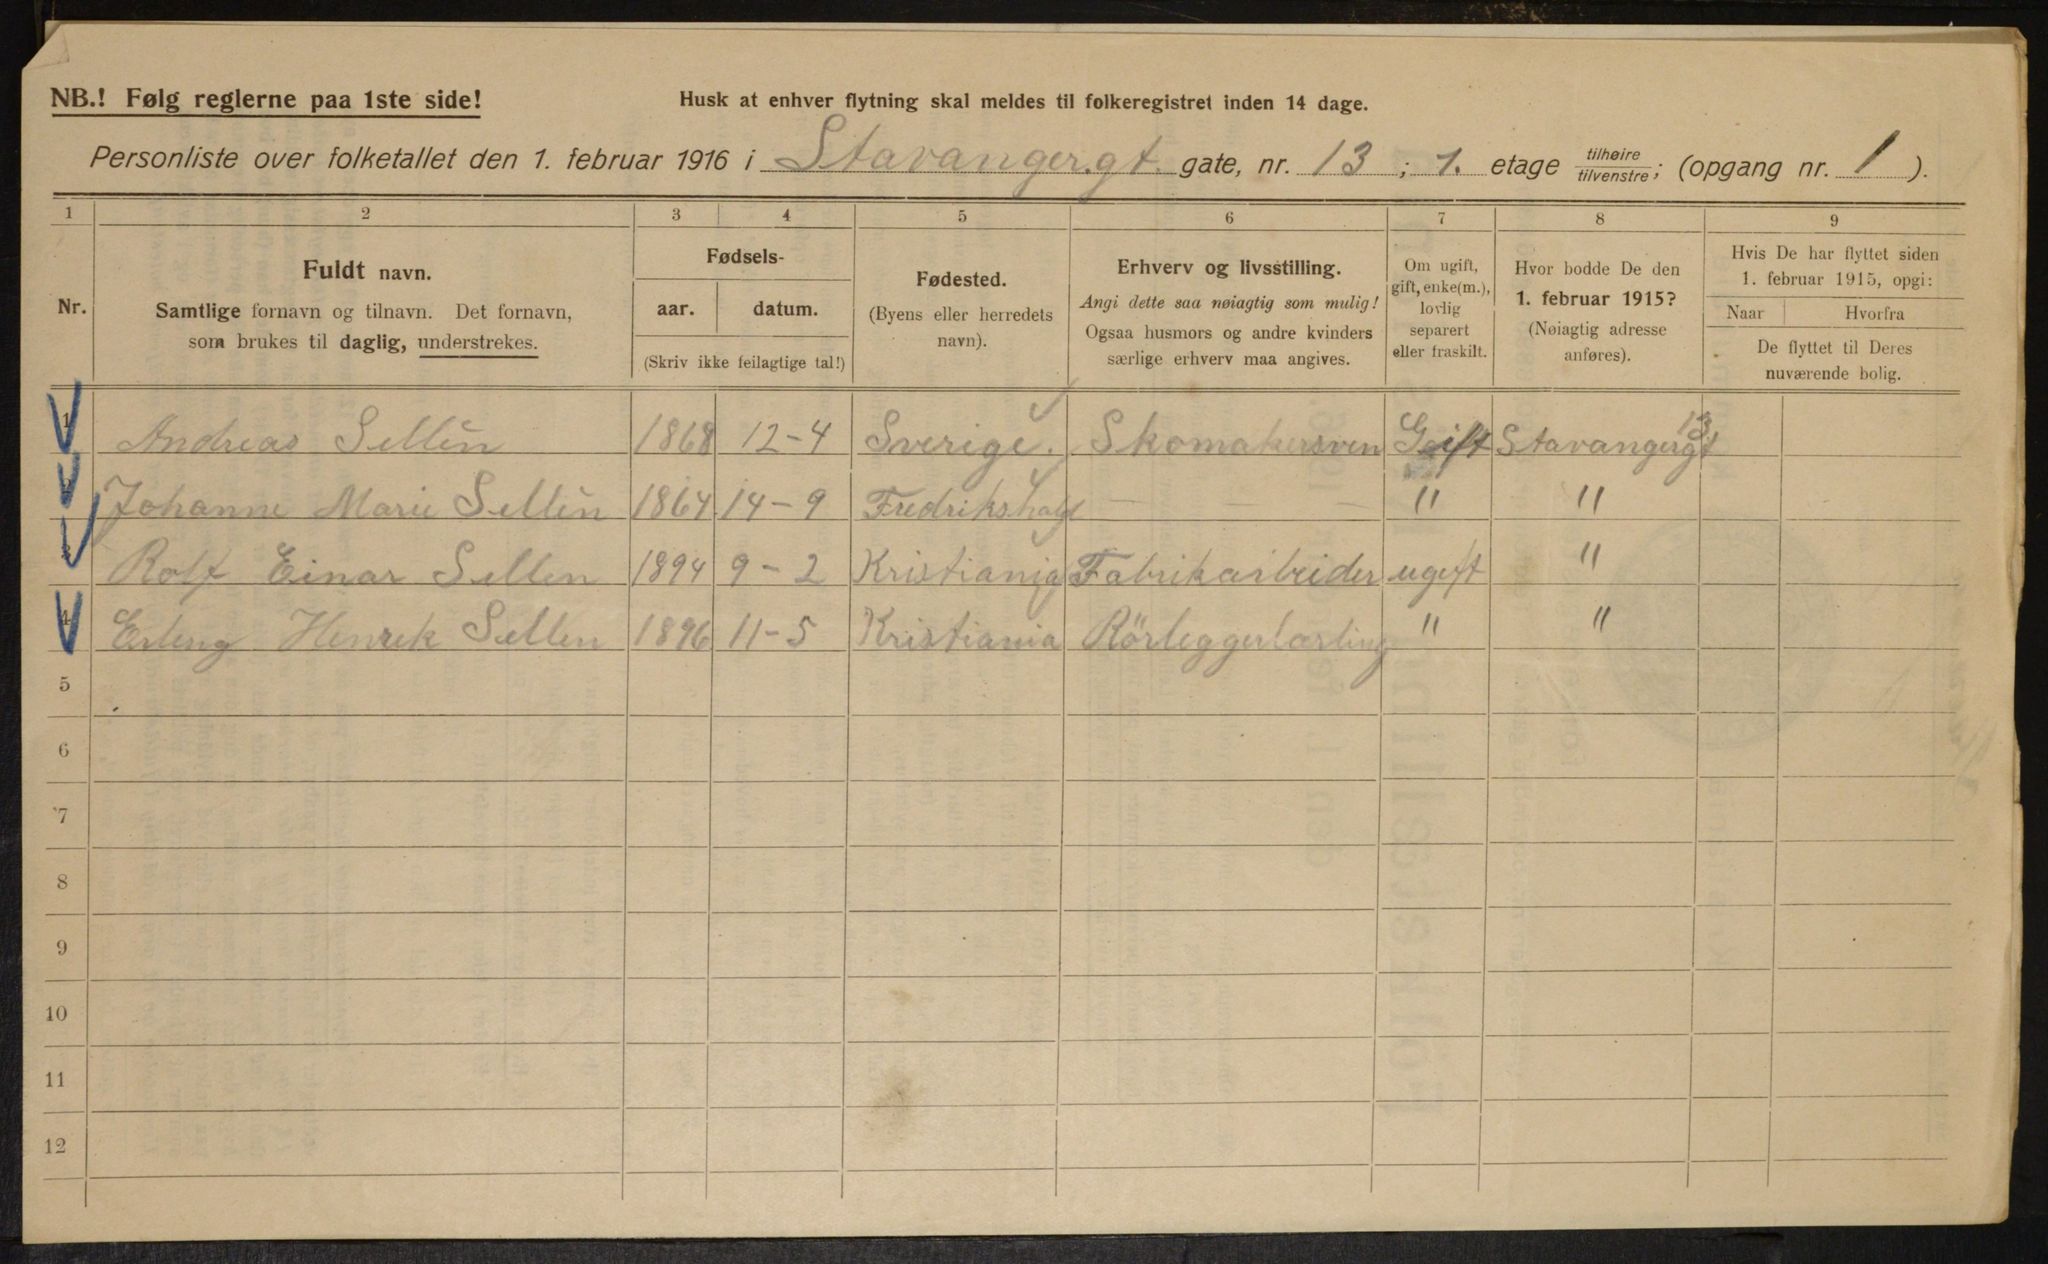 NB.! Følg reglerne paa 1ste side!
Husk at enhver flytning skal meldes til folkeregistret inden 14 dage.
Personliste over folketallet den 1. februar 1916 i Stavanger.gt. gate, nr. 13 ; 1. etage tilhøire / tilvenstre ; (opgang nr. 1 ).
1 2 3 4 5 6 7 8 9
Nr.
Fuldt navn.
Samtlige fornavn og tilnavn. Det fornavn,
som brukes til daglig, understrekes.
Fødsels-
aar. datum.
(Skriv ikke feilagtige tal!)
Fødested.
(Byens eller herredets
navn).
Erhverv og livsstilling.
Angi dette saa nøiagtig som mulig!
Ogsaa husmors og andre kvinders
særlige erhverv maa angives.
Om ugift,
gift, enke(m.),
lovlig
separert
eller fraskilt.
Hvor bodde De den
1. februar 1915?
(Nøiagtig adresse
anføres).
Hvis De har flyttet siden
1. februar 1915, opgi:
Naar Hvorfra
De flyttet til Deres
nuværende bolig.
1 Andreas Sellén 1868 12-4 Sverige. Skomakersven Gift Stavangergt 13
2 Johanne Marie Sellén 1864 14-9 Fredrikshald — — — " "
3 Rolf Einar Sellen 1894 9-2 Kristiania Fabrikarbeider ugift "
4 Erling Henrik Sellen 1896 11-5 Kristiania Rörleggerlærling " "
5
6
7
8
9
10
11
12